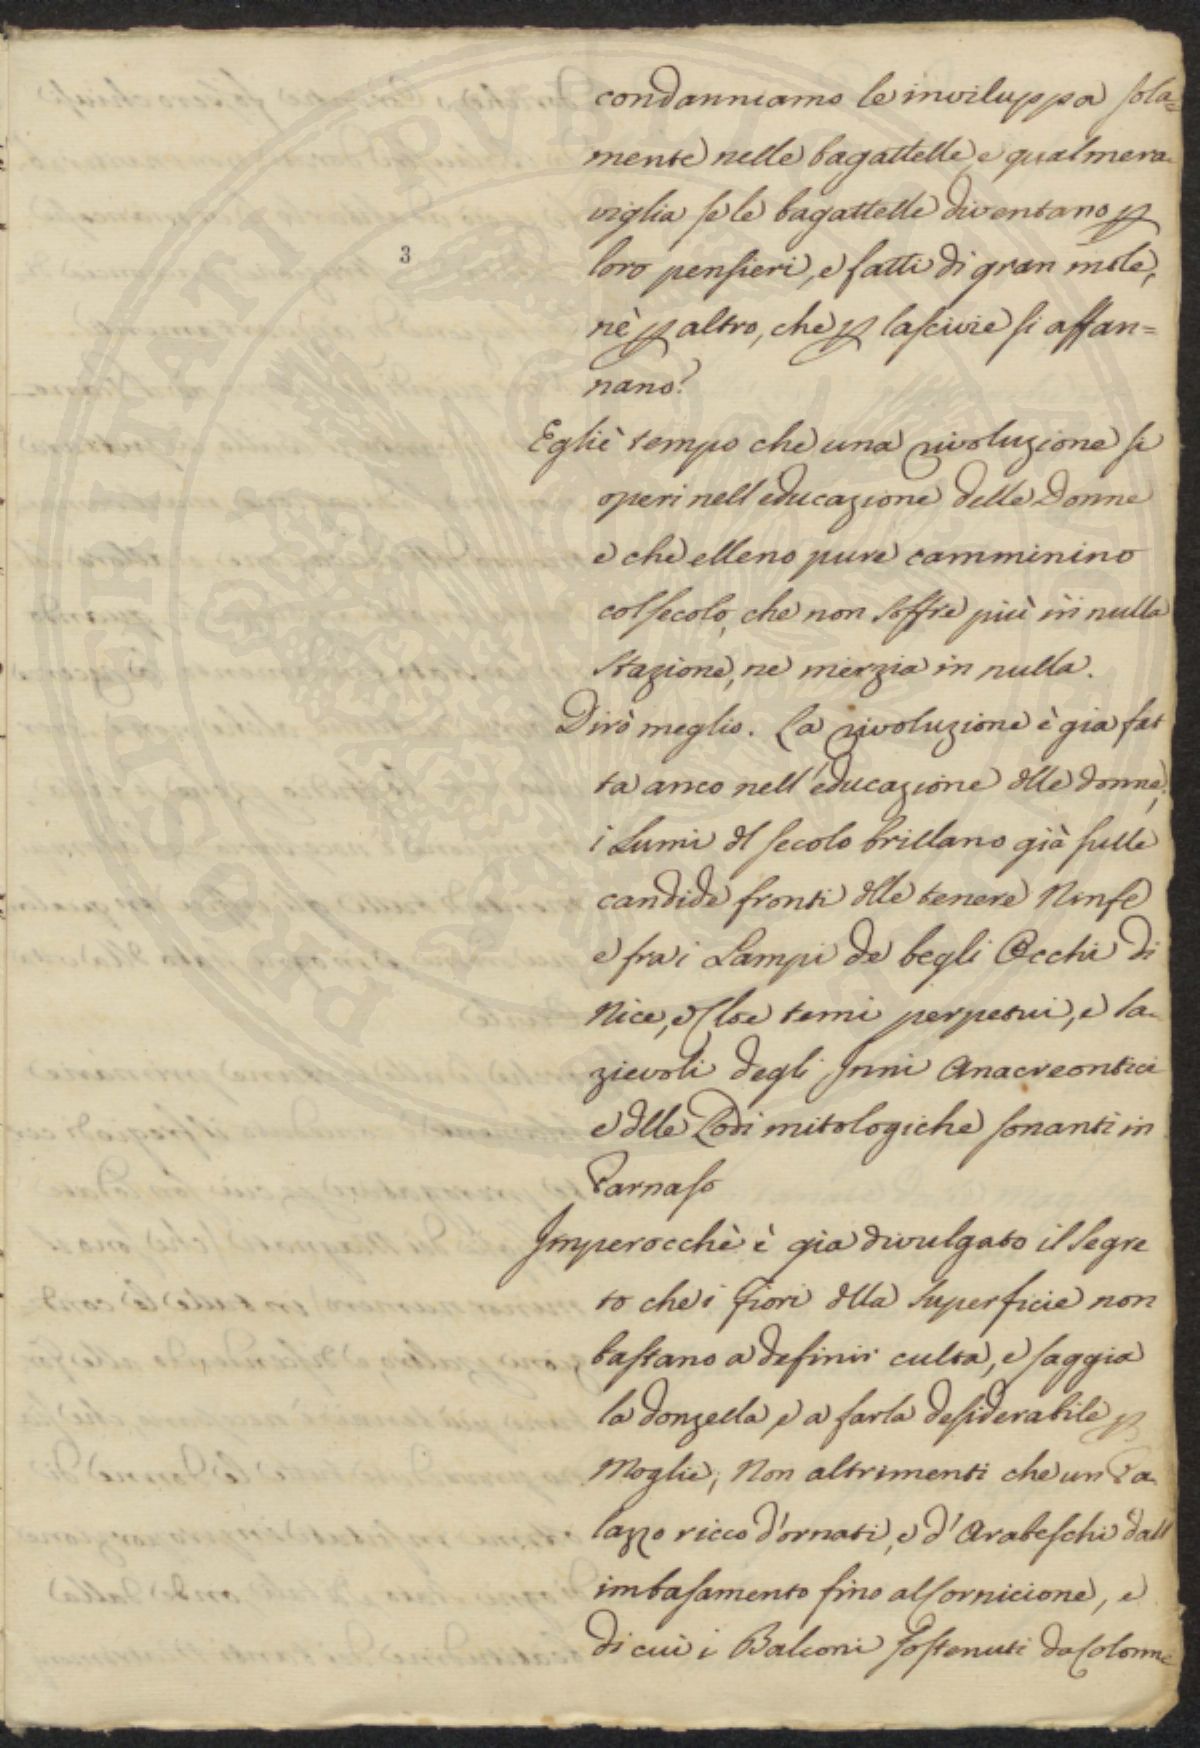 condanniamo le inviluppa sola=
mente nelle bagattelle, e qual mera-
viglia se le bagattelle diventano p
3
loro pensieri, e fatti di gran mole,
nè p altro, che p lascivie si affan=
nano?
Egli è tempo che una rivoluzione si
operi nell educazione delle Donne
e che elleno pure camminino
col secolo, che non soffre più in nulla
stazione, ne inerzia in nulla.
Dirò meglio. La rivoluzione è gia fat
ta anco nell'educazione dlle donne,
i Lumi dl secolo brillano già sulle
candide fronti dlle tenere Ninfe
e fra i Lampi de begli Occhi di
Nice, e Cloe temi perpetui, e sa-
zievoli degli Inni Anacreontici
e dlle Lodi mitologiche sonanti in
Parnaso
Imperocchè è gia divulgato il segre
to che i fiori dlla superficie non
bastano a definir culta, e saggia
la donzella, e a farla desiderabile p
Moglie; Non altrimenti che un Pa-
lazzo ricco d'ornati, e d'Arabeschi dall
imbasamento fino al Cornicione, e
di cui i Balconi sostenuti da Colonne
PROSPERITATI PUBLICAE